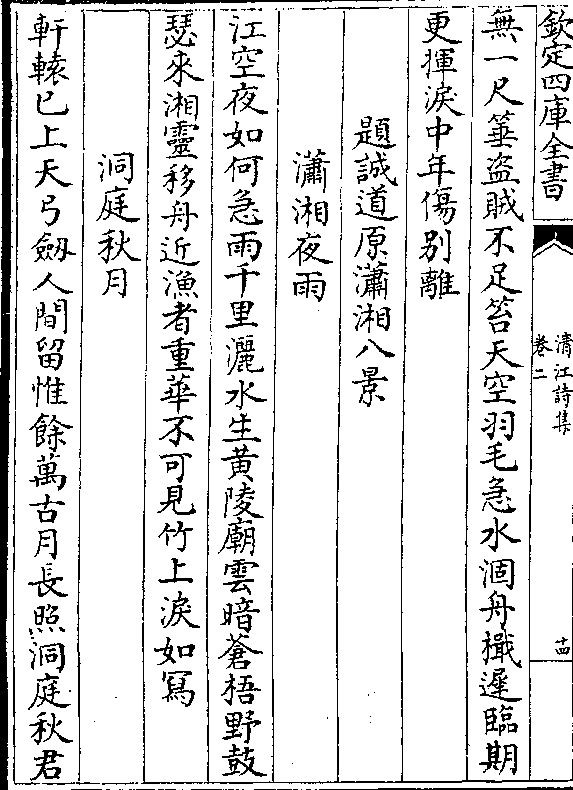 欽定四庫全書
清江詩集
卷二
十四
無一尺箠盗賊不足笞天空羽毛急水涸舟檝遲臨期
更揮淚中年傷别離
題誠道原瀟湘八景
瀟湘夜雨
江空夜如何急雨千里灑水生黄陵廟雲暗蒼梧野鼓
瑟來湘靈移舟近漁者重華不可見竹上淚如冩
洞庭秋月
軒轅已上天弓劔人間留惟餘萬古月長照洞庭秋君